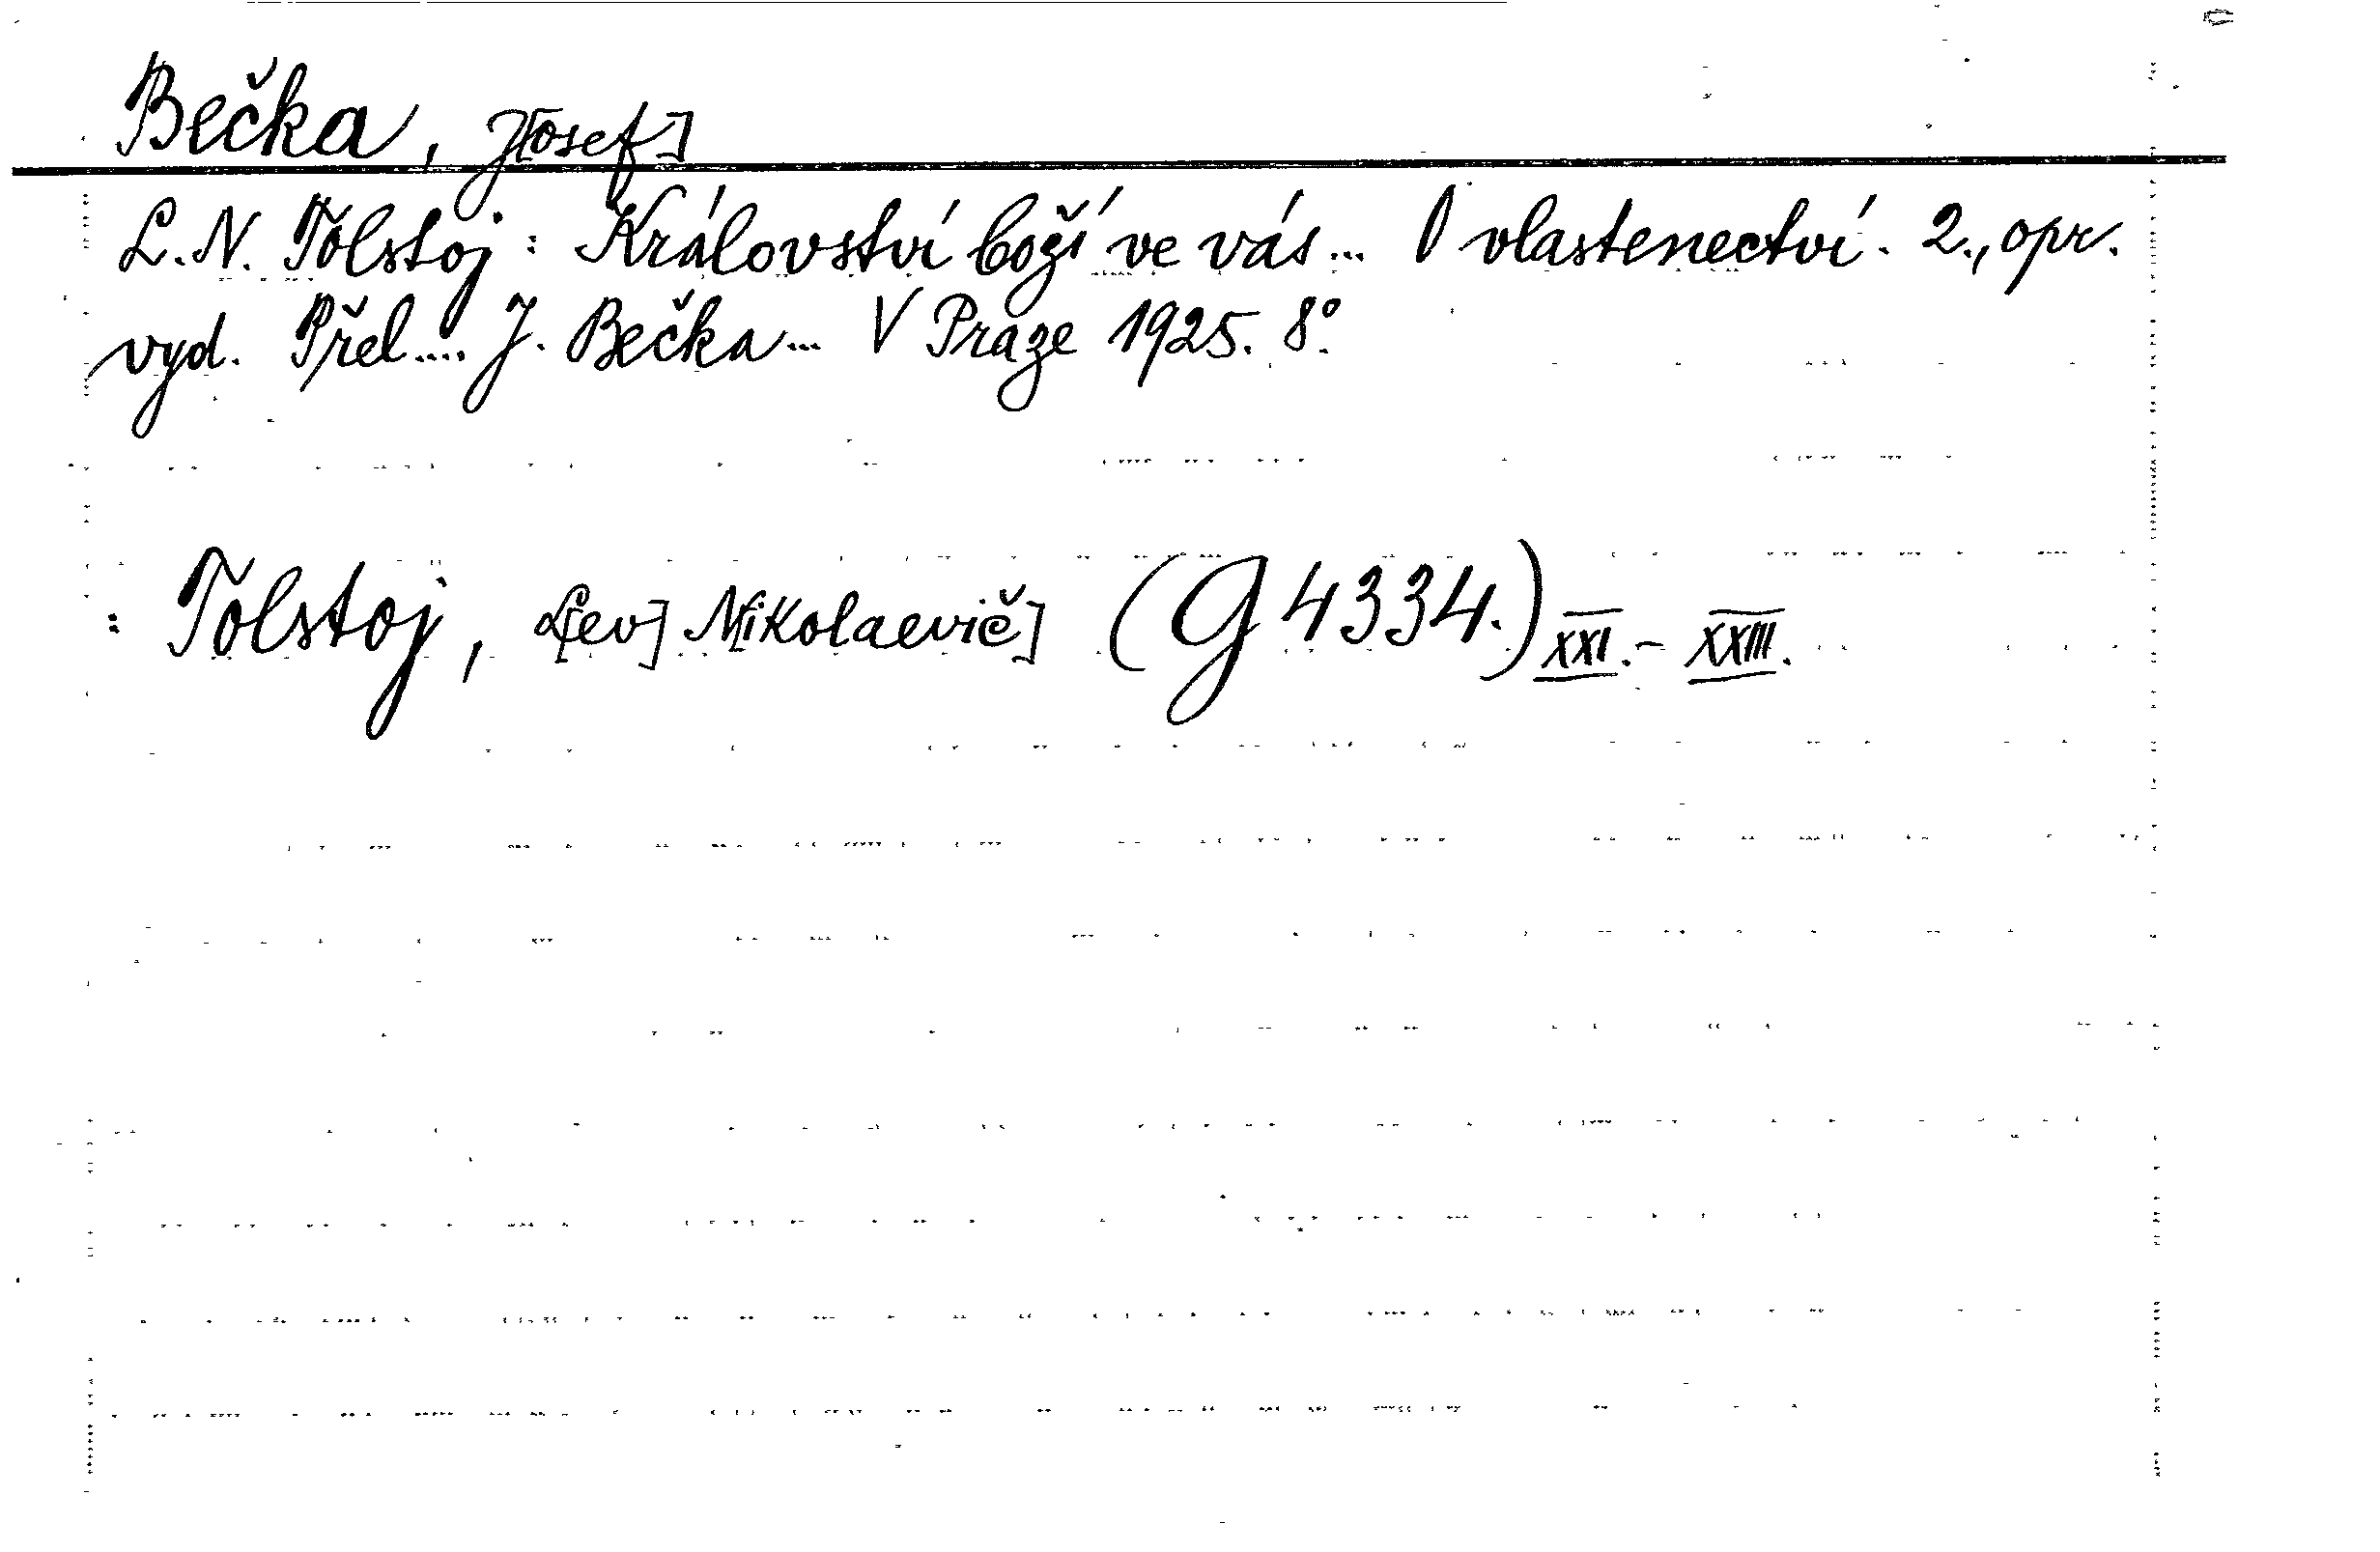 Bečka, J[osef]
L. N. Tolstoj: Království boží ve vás... O vlastenectví. 2., opr.
vyd. Přel.... J. Bečka... V Praze 1925. 8°.
: Tolstoj, L[ev] N[ikolaevič] (G 4334.) XXI.-XXIII.